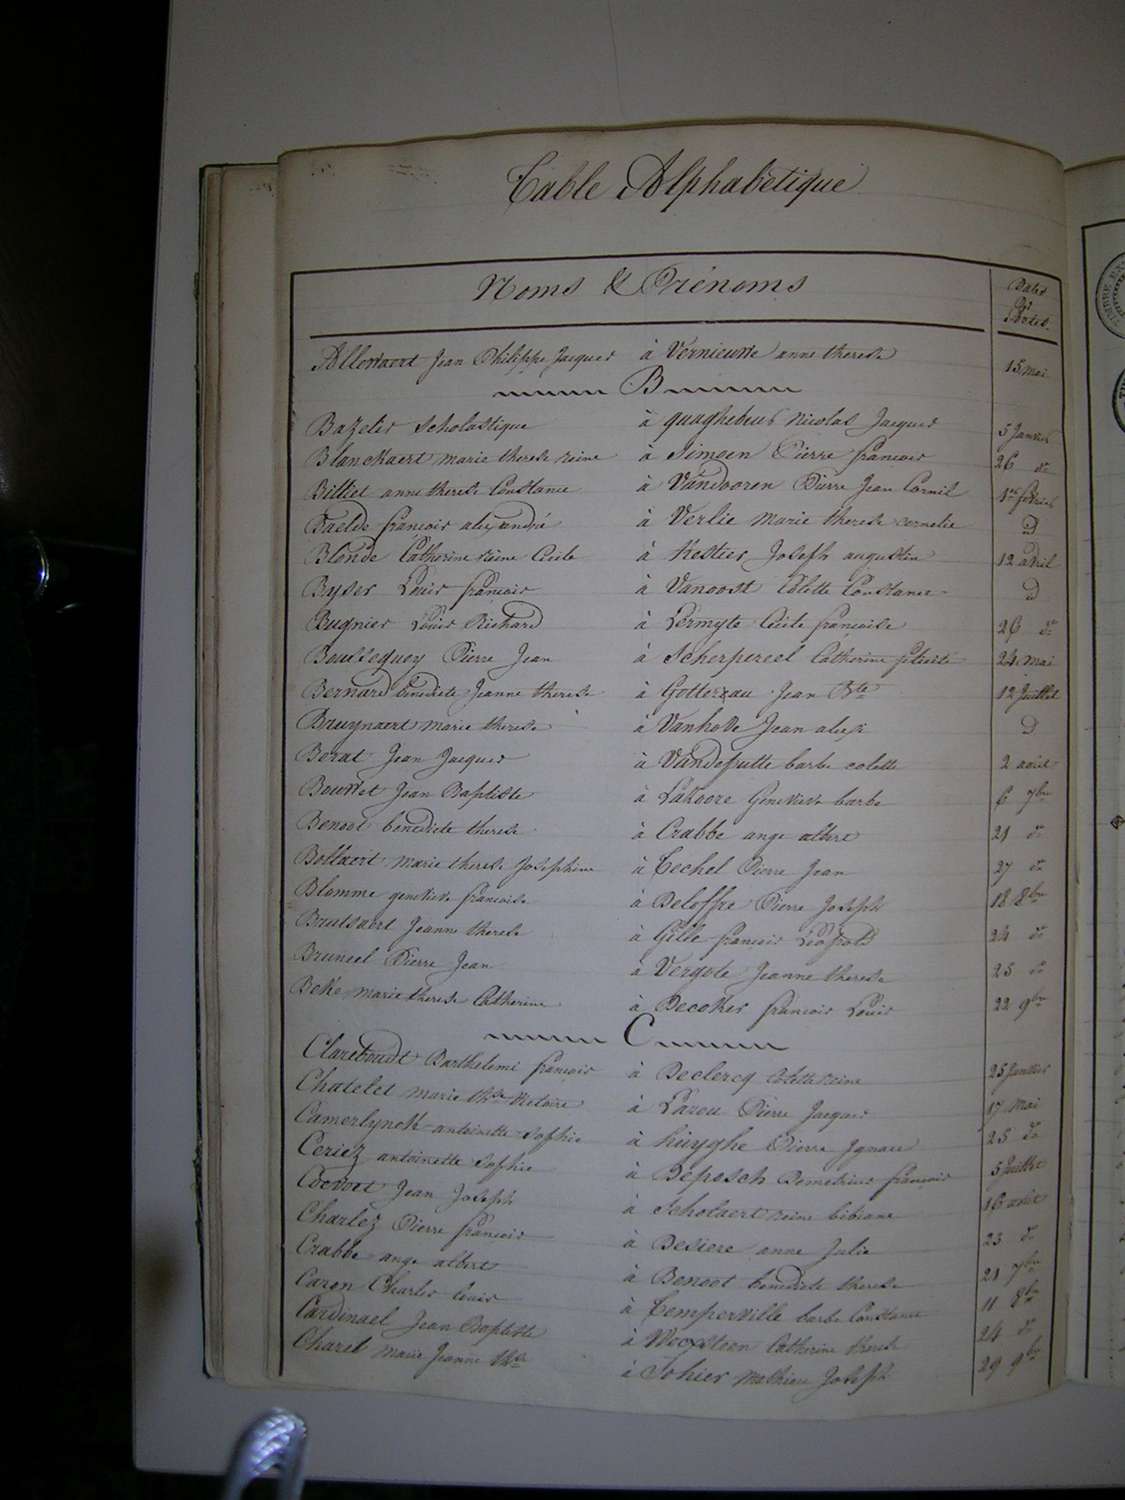 Table Alphabétique
Noms & Prénoms
Dates
des
Actes
Allowaert Jean Philippe Jacques à Vernieuwe anne therese 15 mai
B
Bazeter Scholastique à quaghebeur Nicolas Jacques 5 Janvier
Blanckaert marie therese reine à Simoen Pierre françois 26 do
Billiet anne therese Constance à Vandooren Pierre Jean Cornil 1er fevrier
Baelde françois alexandre à Verlie marie therese cornelie id
Blonde Catherine reine Cecile à Kestier Joseph augustin 12 avril
Byser Louis françois à Vanoost Colette Constance id
Bugnier Louis Richard à Lermyte Cecile françoise 26 do
Boussequey Pierre Jean à Scherpereel Catherine 24 mai
Bernard benedicte Jeanne therese à Gotterau Jean Bte 12 Juillet
Bruynaert marie therese à Vanhove Jean alexis id
Berat Jean Jacques à Vandeputte barbe colette 2 août
Bourret Jean Baptiste à Lahoore Genevieve barbe 6 7bre
Benoot benedicte therese à Crabbe ange albert 21 do
Bollaert marie therese Josephine à Techel Pierre Jean 27 do
Blomme genevieve françoise à Deloffre Pierre Joseph 18 8bre
Brutsaert Jeanne therese à Gille françois Léopold 24 do
Bruneel Pierre Jean à Vergote Jeanne therese 25 do
Beke marie therese Catherine à Decoker françois Louis 22 9bre
C
Clareboudt Barthelemi françois à Declercq Colette reine 25 Janvier
Chatelet marie thse Victoire à Lazou Pierre Jacques 17 Mai
Camerlynck antoinette Sophie à huyghe Pierre Ignace 25 do
Ceriez antoinette Sophie à Depesch Demetrius françois 5 Juillet
Cocvoet Jean Joseph à Scholaert reine bibiane 16 août
Charlez Pierre françois à Desiere anne Julie 23 do
Crabbe ange albert à Benoot benedicte therese 21 7bre
Caron Charles louis à Temperville barbe Constance 11 8bre
Cardinael Jean Baptiste à Wocxsteen Catherine therese 24 do
Charel marie Jeanne thse à Sohier mathieu Joseph 29 9bre